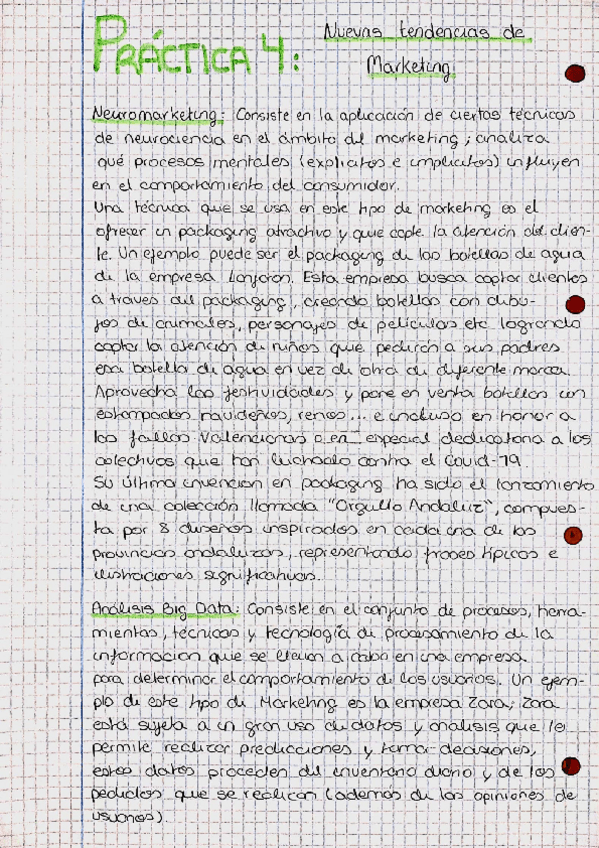 PRÁCTICA 4: Nuevas tendencias de
Marketing.
Neuromarketing: Consiste en la aplicación de ciertas técnicas
de neurociencia en el ámbito del marketing; analiza
qué procesos mentales (explicitos e implicitos) influyen
en el comportamiento del consumidor.
Una técnica que se usa en este tipo de marketing es el
ofrecer un packaging atractivo y que capte la atención del clien-
te. Un ejemplo puede ser el packaging de las botellas de agua
de la empresa Lanjarón. Esta empresa busca captar clientes
a traves del packaging, creando botellas con dibu-
jos de animales, personajes de películas etc logrando
captar la atención de niños que pedirán a sus padres
esa botella de agua en vez de otra de diferente marca.
Aprovecha las festividades y pone en venta botellas con
estampados navideños, renos... e incluso en honor a
las fallas Valencianas o en especial dedicatoria a los
colectivos que han luchado contra el Covid-19.
Su última invención en packaging ha sido el lanzamiento
de una colección llamada "Orgullo Andaluz", compues-
ta por 8 diseños inspirados en cada una de las
provincias andaluzas, representando frases típicas e
ilustraciones significativas.
Análisis Big Data: Consiste en el conjunto de procesos, herra-
mientas, técnicas y tecnología de procesamiento de la
información que se llevan a cabo en una empresa
para determinar el comportamiento de los usuarios. Un ejem-
plo de este tipo de Marketing es la empresa Zara; Zara
está sujeta a un gran uso de datos y análisis que le
permite realizar predicciones y tomar decisiones,
estos datos proceden del inventario diario y de los
pedidos que se realizan (además de las opiniones de
usuarios).